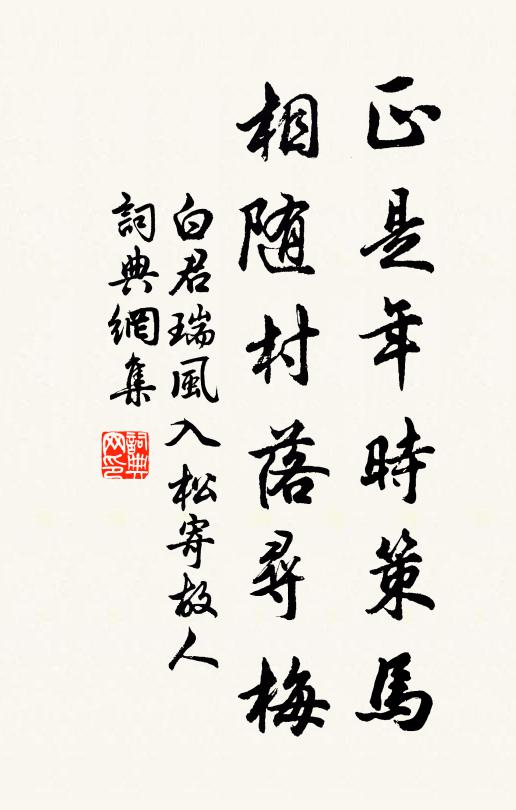 正是年時策馬
相随村落尋梅
白君瑞風入松寄故人
詞典網集
詞典
网印